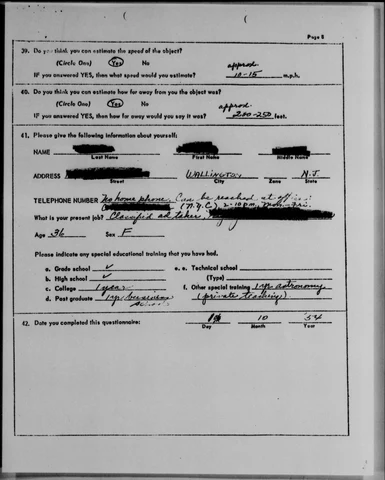 Page 8
39. Do you think you can estimate the speed of the object?
(Circle One) Yes No
IF you answered YES, then what speed would you estimate? approx 10-15 m.p.h.
40. Do you think you can estimate how far away from you the object was?
(Circle One) Yes No
IF you answered YES, then how far away would you say it was? approx 200-250 feet.
41. Please give the following information about yourself:
NAME
Last Name First Name Middle Name
ADDRESS WALLINGTON N.J.
Street City Zone State
TELEPHONE NUMBER No home phone. Can be reached at office
(N.Y.C.)
What is your present job? Classified ad taker,
Age 36 Sex F
Please indicate any special educational training that you have had.
a. Grade school ✓ e. Technical school
b. High school ✓ (Type)
c. College 1 year f. Other special training 1 yr astronomy
d. Post graduate 1 yr business school (private teaching)
42. Date you completed this questionnaire: 10 54
Day Month Year